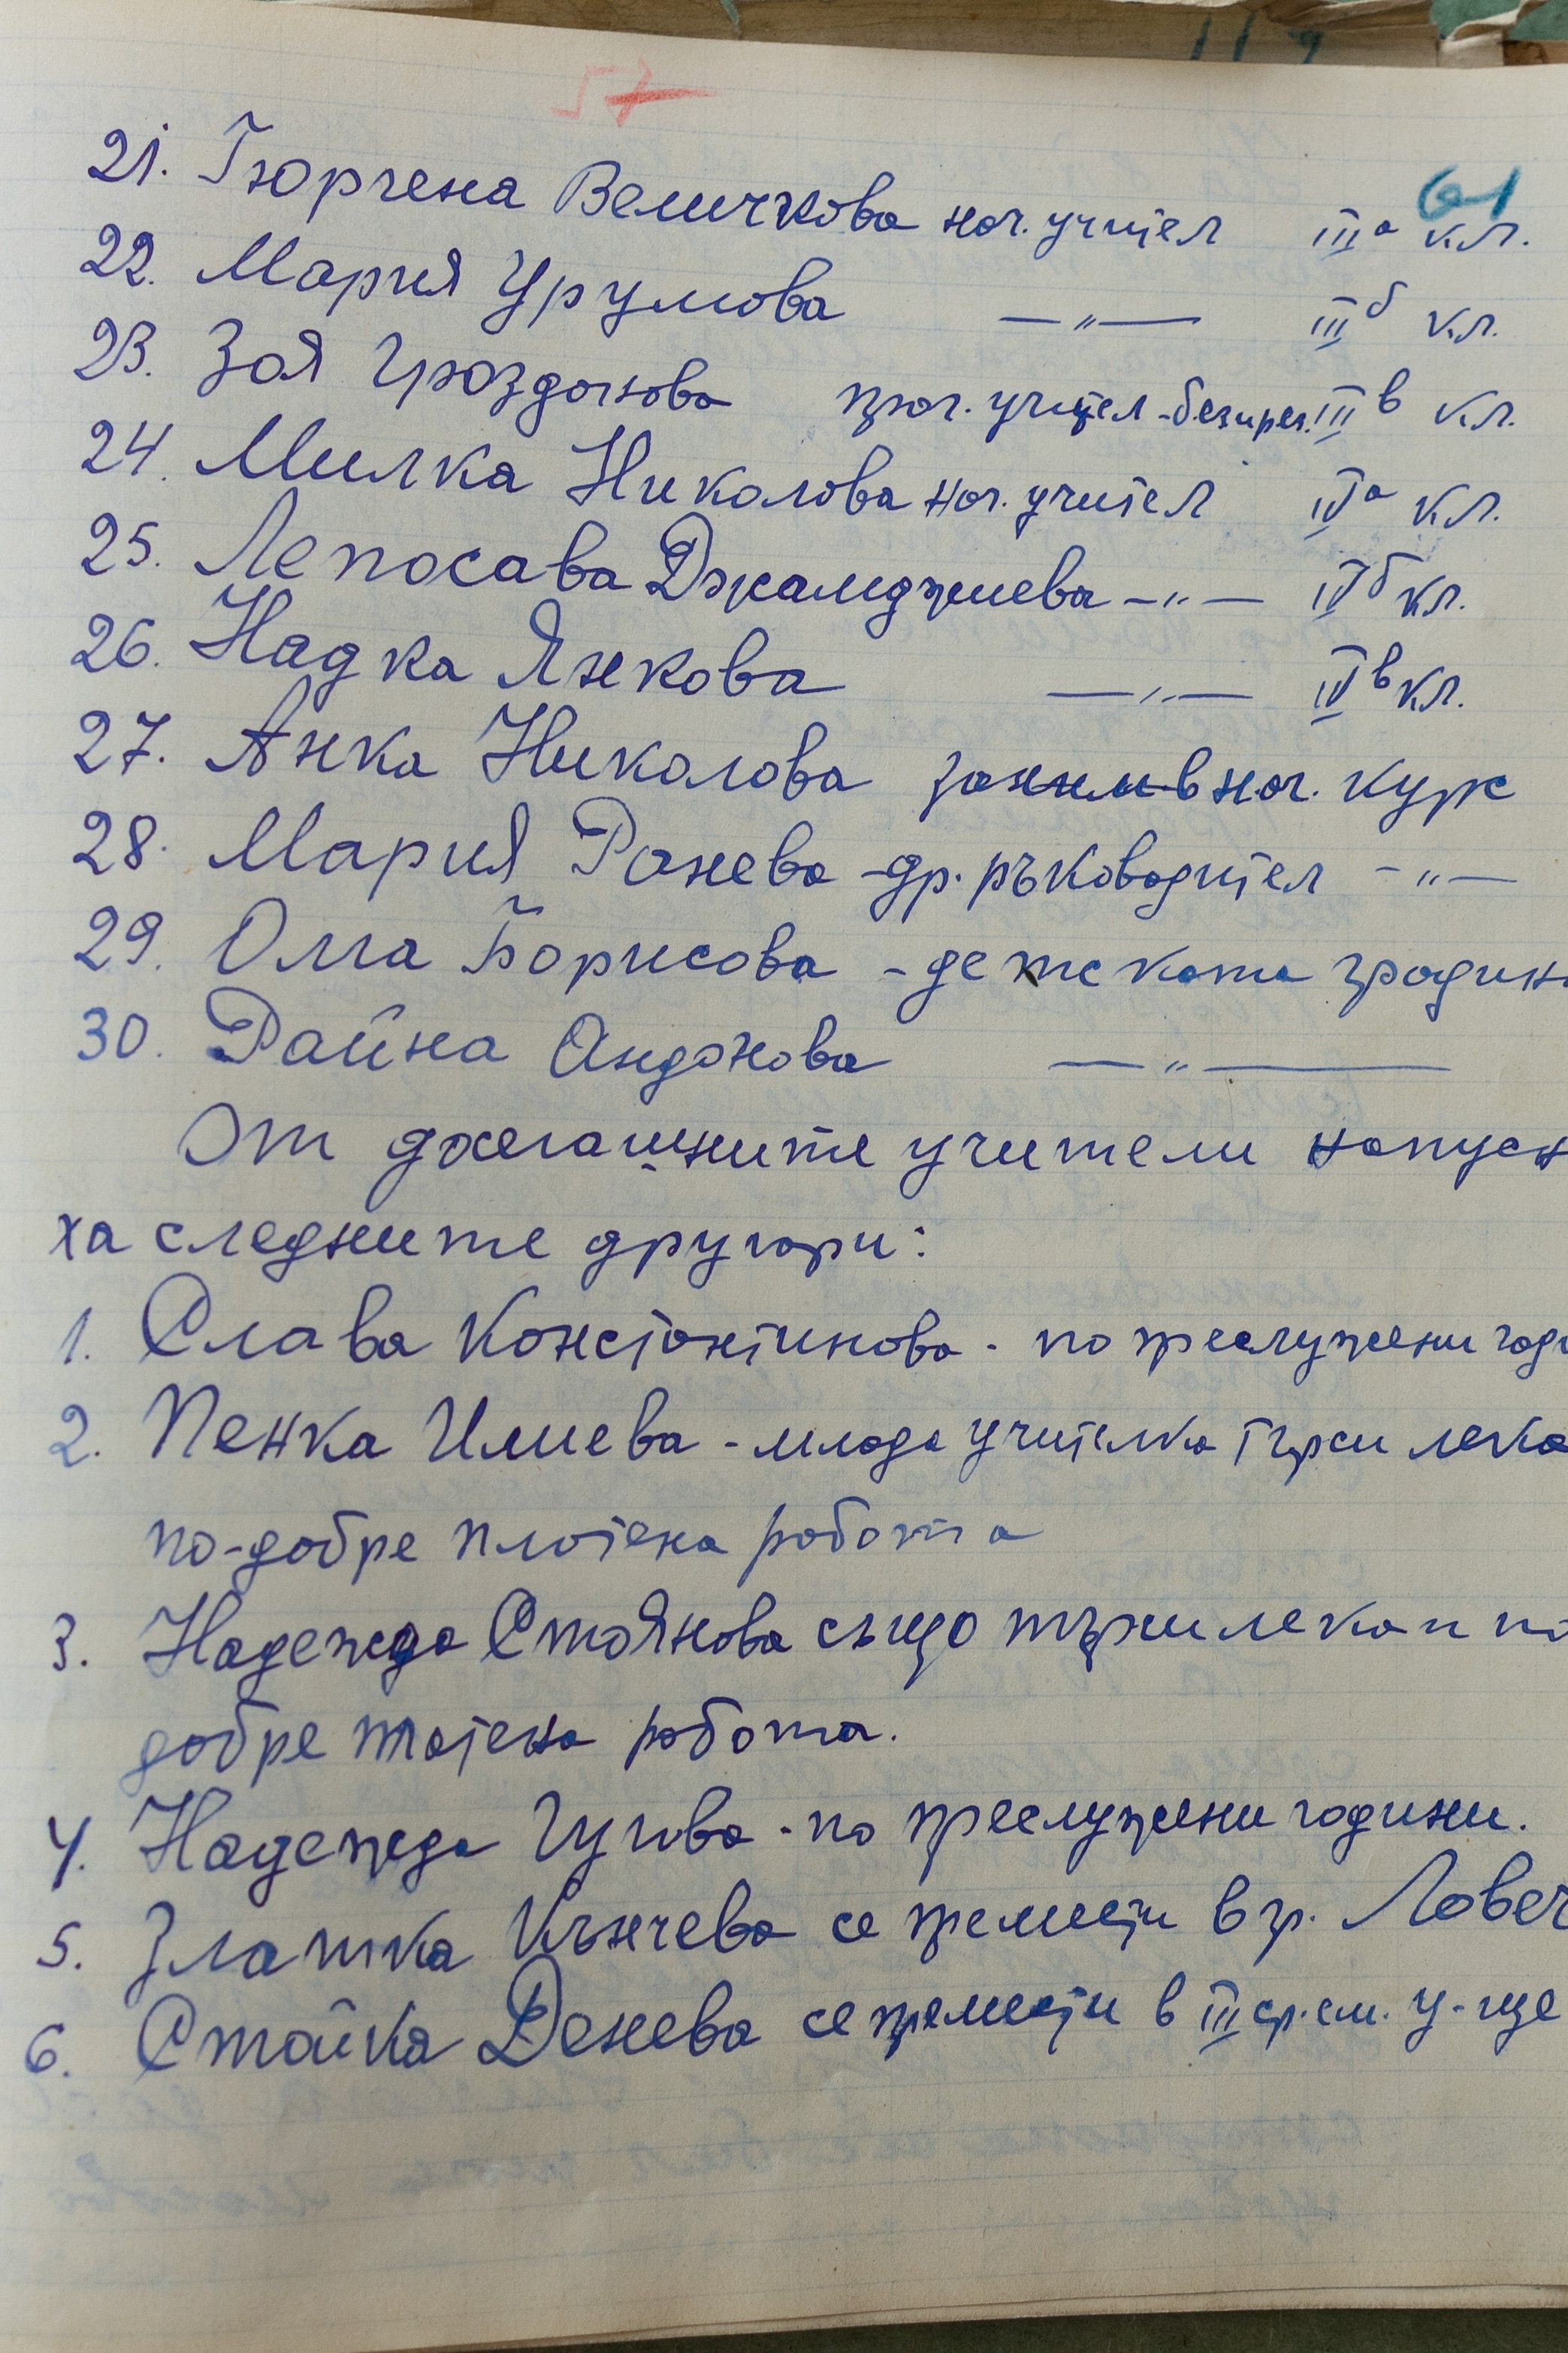 57
61
21. Гюргена Величкова нач. учител IIIа кл.
22. Мария Урумова —"— IIIб кл.
23. Зоя Гроздонова прог. учител - безпрез. IIIв кл.
24. Милка Николова нач. учител IVа кл.
25. Лепосава Джамджиева —"— IVб кл.
26. Надка Янкова —"— IVв кл.
27. Анка Николова заним в нач. курс
28. Мария Ранева - др. ръководител —"—
29. Олга Борисова - детската градин
30. Райна Андонова —"—
От досегашните учители напусн
ха следните другари:
1. Слава Константинова - по преслужени годи
2. Пенка Илиева - млада учителка търси лека
по-добре платена работа
3. Надежда Стоянова също търси лека и по
добре платена работа.
4. Надежда Гугова - по преслужени години.
5. Златка Кънчева се премести в гр. Ловеч
6. Стойка Денева се премести в III ср. см. у-ще